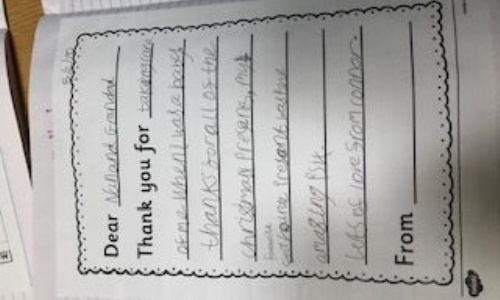 Dear Nan and Grandad
Thank you for taking care
of me when I was a baby
thanks for all of the
christmas Presans, my
favourite
Present was the
amazing
lots of love from connor.
From